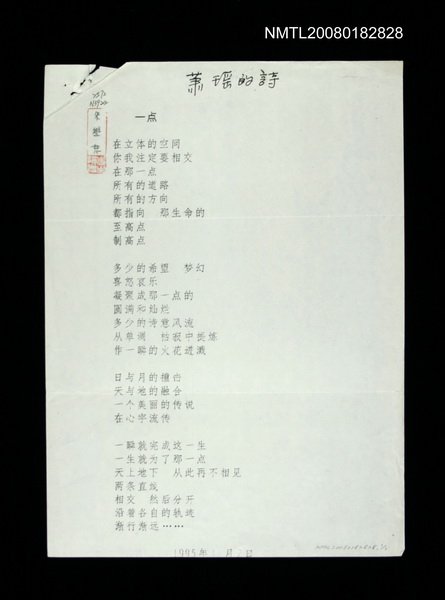 NMTL20080182828
萧瑶的詩
一点
在立体的空间
你我注定要相交
在那一点
所有的道路
所有的方向
都指向　那生命的
至高点
制高点
多少的希望　梦幻
喜怒哀乐
凝聚成那一点的
圆满和灿烂
多少的诗意风流
从单调　枯寂中提炼
作一瞬的火花迸溅
日与月的撞击
天与地的融合
一个美丽的传说
在心宇流传
一瞬就完成这一生
一生就为了那一点
天上地下　从此再不相见
两条直线
相交　然后分开
沿着各自的轨迹
渐行渐远……
1995年